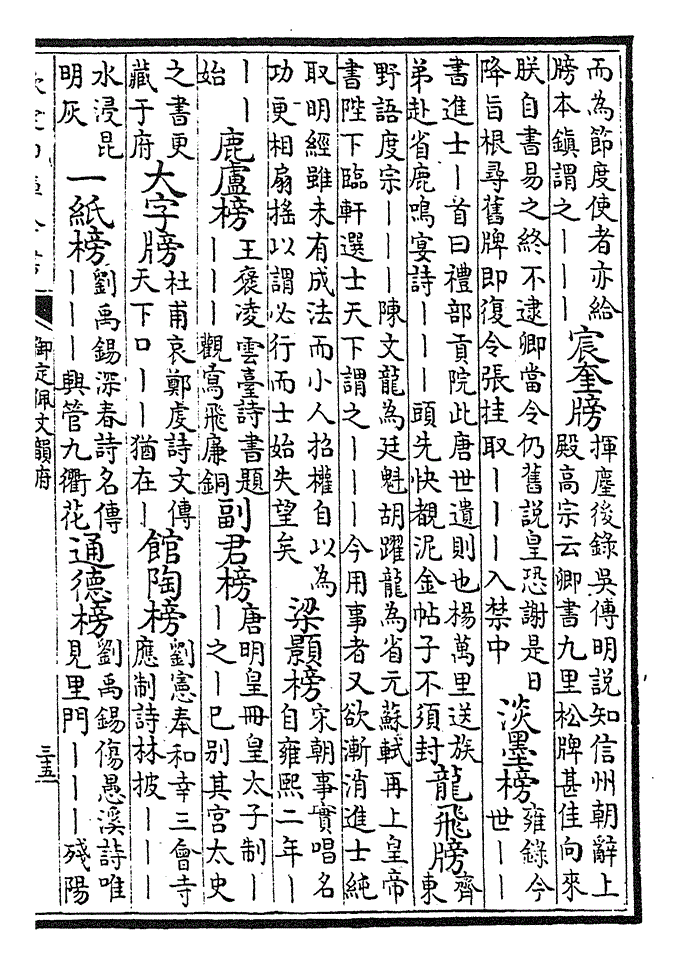 而為節度使者亦給
牓本鎮謂之｜｜｜
宸奎牓
揮麈後錄吳傅明説知信州朝辭上
殿高宗云卿書九里松牌甚佳向來
朕自書易之終不逮卿當令仍舊説皇恐謝是日
降旨根尋舊牌即復令張挂取｜｜｜入禁中
淡墨榜
雍錄今
世｜｜
書進士｜首曰禮部貢院此唐世遺則也楊萬里送族
弟赴省鹿鳴宴詩｜｜｜頭先快覩泥金帖子不須封
龍飛牓
齊
東
野語度宗｜｜｜陳文龍為廷魁胡躍龍為省元蘇軾再上皇帝
書陛下臨軒選士天下謂之｜｜｜今用事者又欲漸消進士純
取明經雖未有成法而小人招權自以為
功更相扇搖以謂必行而士始失望矣
梁顥榜
宋朝事實唱名
自雍熙二年｜
｜｜
始
鹿盧榜
王褒凌雲臺詩書題
｜｜｜觀鳶飛廉銅
副君榜
唐明皇冊皇太子制｜
｜之｜已别其宮太史
之書更
藏于府
大字牓
杜甫哀鄭虔詩文傳
天下口｜｜猶在｜
館陶榜
劉憲奉和幸三會寺
應制詩林披｜｜｜
水浸昆
明灰
一紙榜
劉禹錫深春詩名傳
｜｜｜興管九衢花
通德榜
劉禹錫傷愚溪詩唯
見里門｜｜｜殘陽
御定佩文韻府
三五